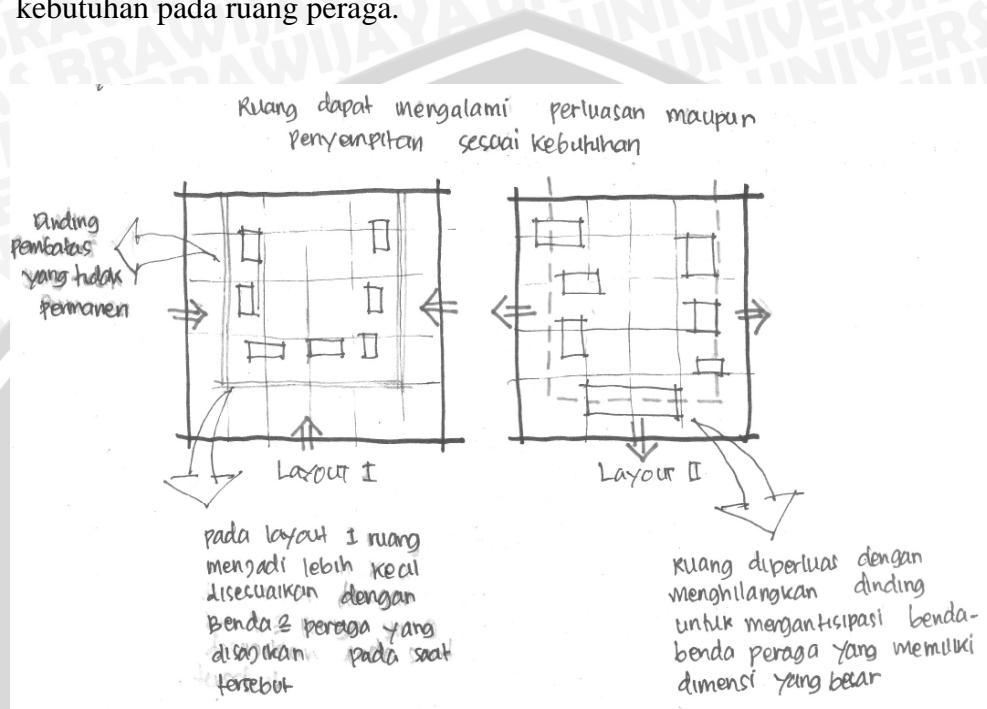 kebutuhan pada ruang peraga.
Ruang dapat mengalami perluasan maupun
Penyempitan sesuai kebutuhan
Dinding
Pembatas
yang tidak
permanen
Layout I
Layout II
pada layout 1 ruang
menjadi lebih kecil
disesuaikan dengan
Benda2 peraga yang
disajikan pada saat
tersebut
Ruang diperluas dengan
menghilangkan dinding
untuk mengantisipasi benda-
benda peraga yang memiliki
dimensi yang besar
BRAWIJAYA
UNIVERS